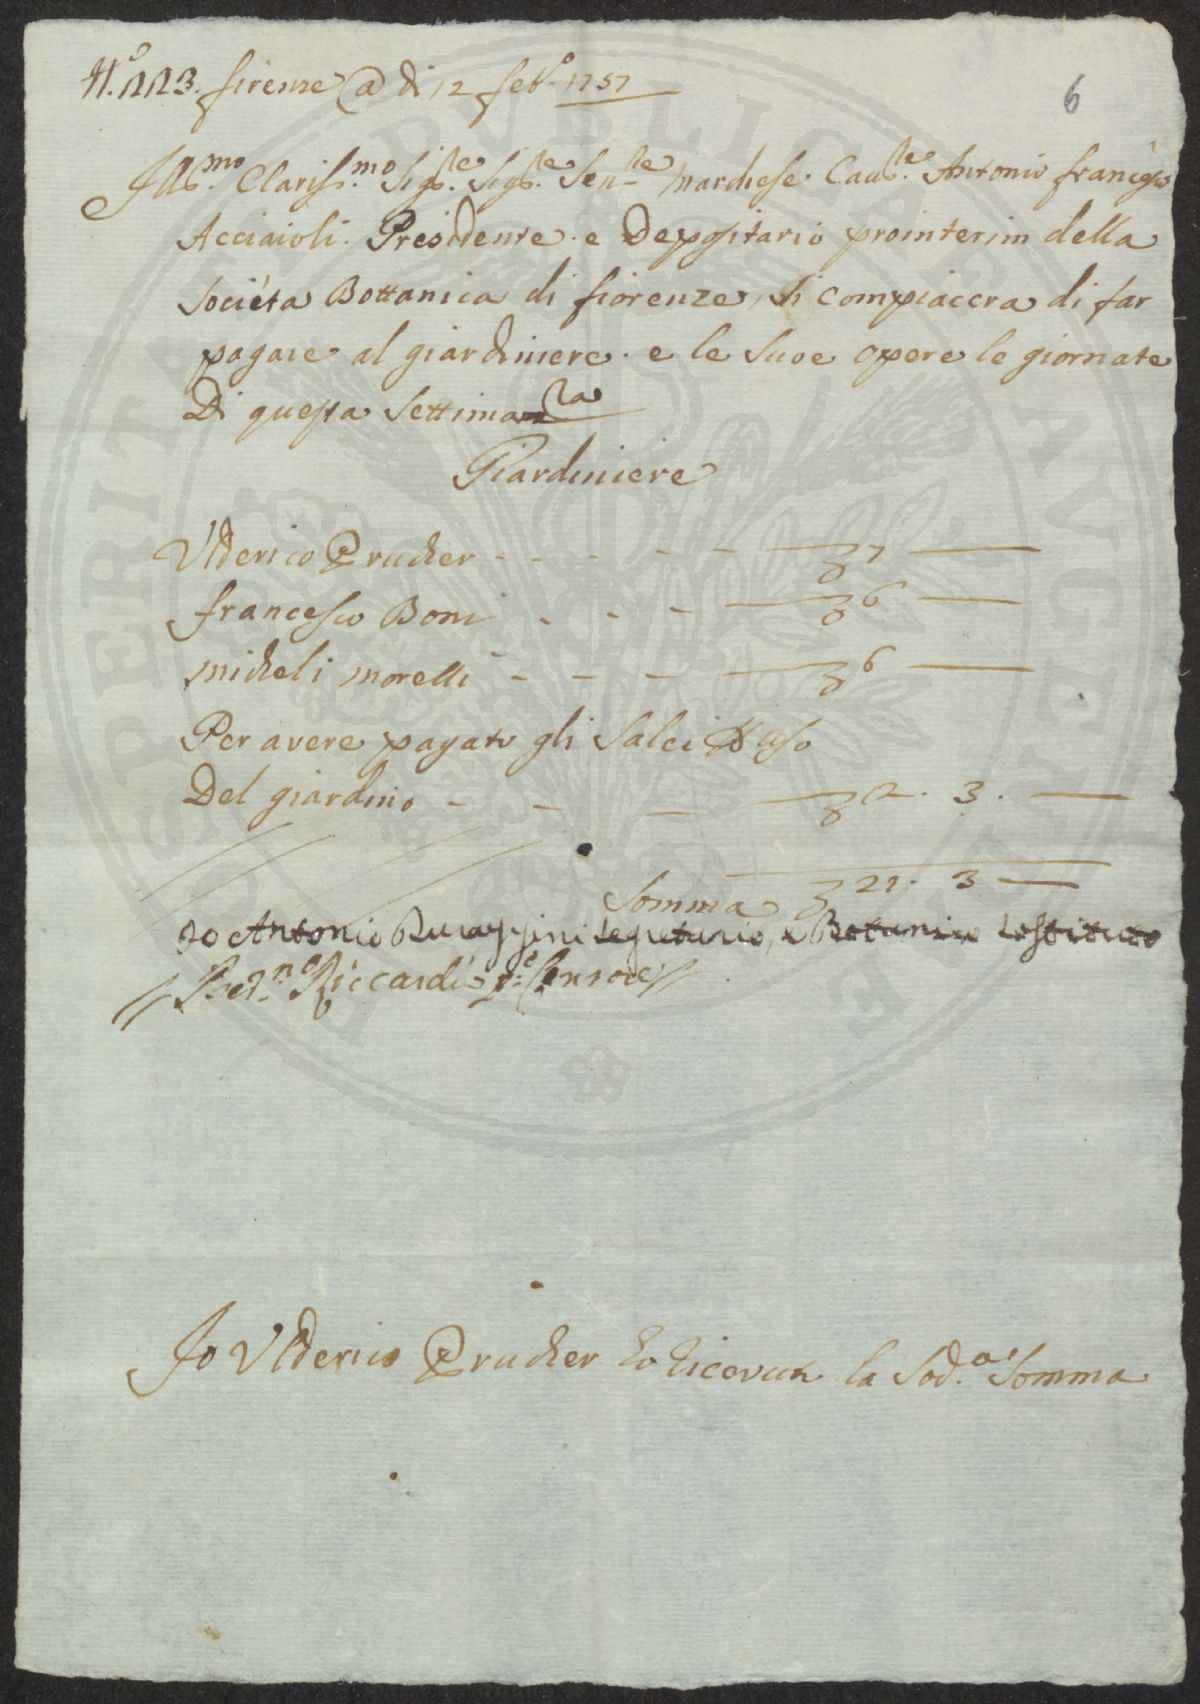 N.º 113. firenze @ di 12 feb.º 1757
6
Ill.mo Clariss.mo Sig.re Sig.re Sen.re marchese. Cau.re Antonio franc.º
Acciaioli. Presidente. e Depositario prointerim della
Societa Bottanica di fiorenze, Si compiacera di far
pagare al giardiniere. e le Suoe opere le giornate
Di questa Settimana
Giardiniere
Vlderico Prucher - - - - - 7 —
francesco Boni - - - 6 —
micheli morelli - - - 6 —
Per avere pagato gli Salci uso
Del giardino - - - 2. 3. —
Somma 21. 3 —
Io Antonio Segretario, e Botanico Sostituto
Ber.no Riccardi p.e Censore
Jo Vlderico Prucher ho ricevuto la Sod.a Somma
DISPERITA PVBLICAE AVGENTAE